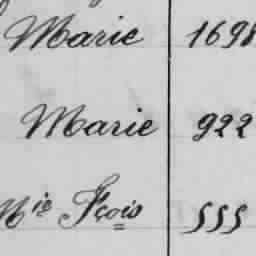 Marie 1698
Marie 922
Mie Fçois 555